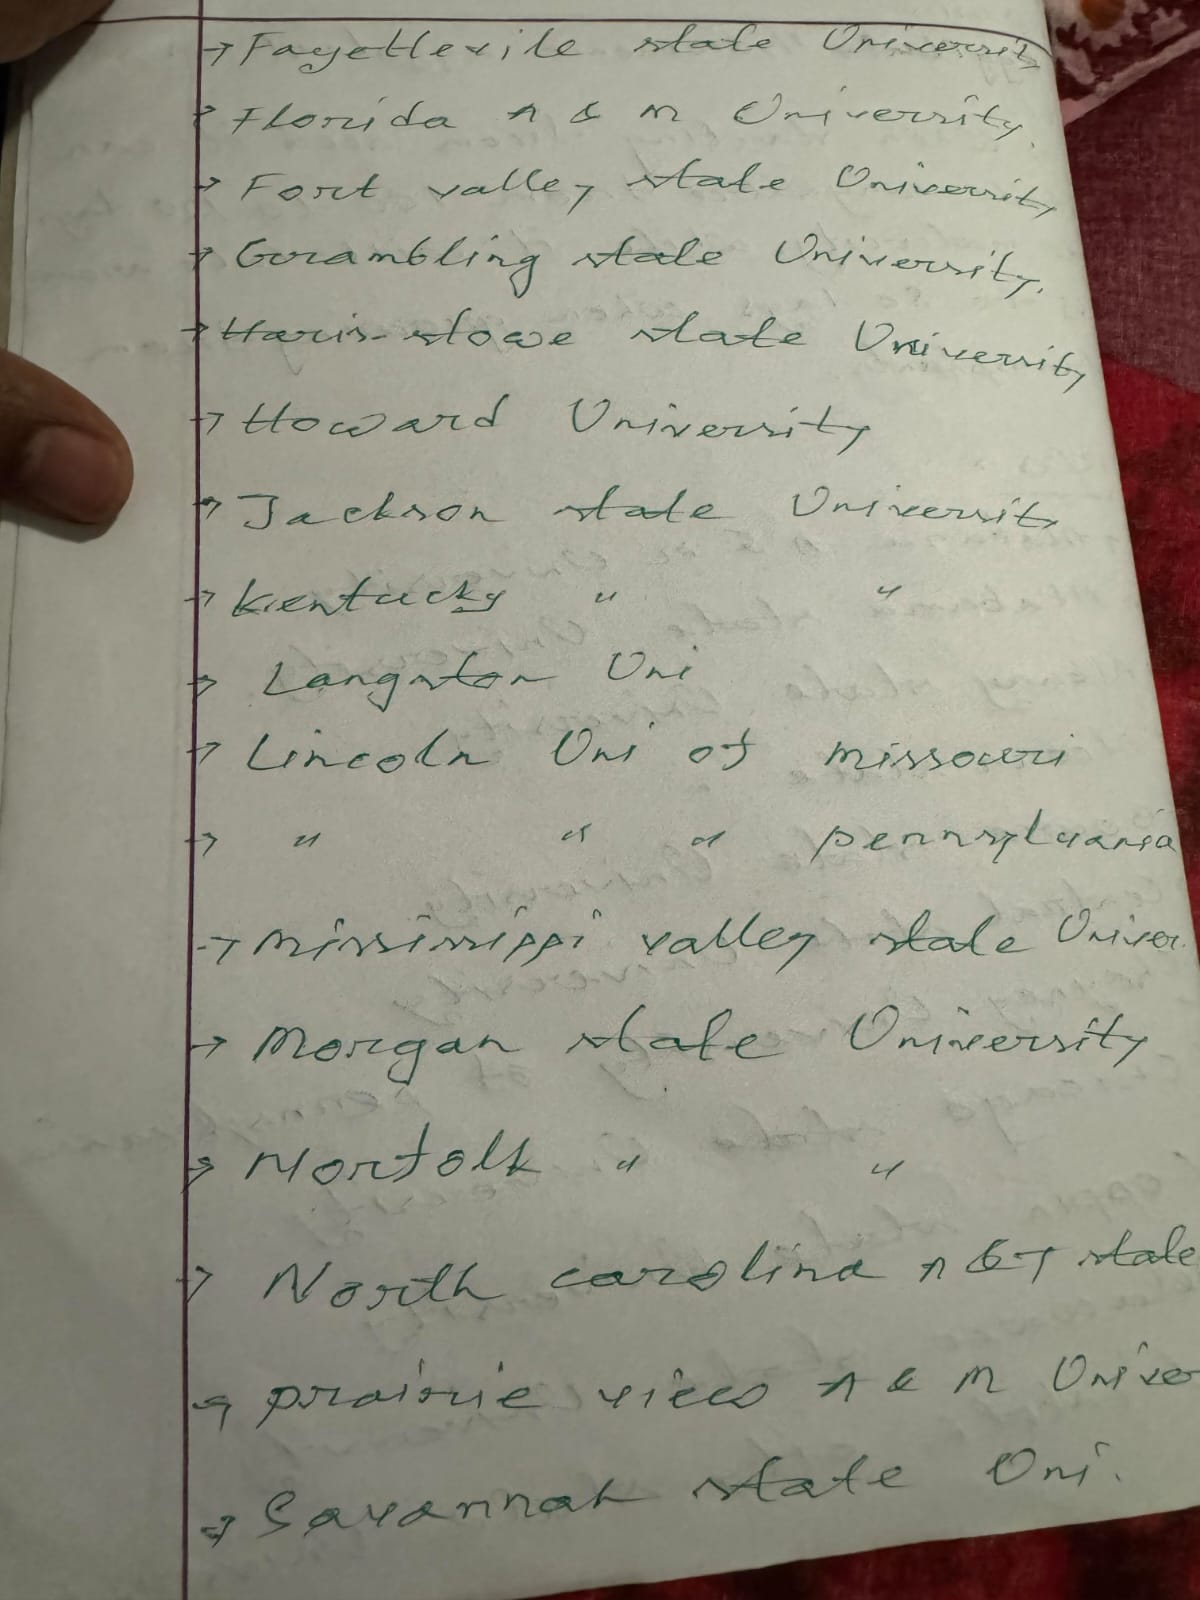 → Fayettevile state University
→ Florida A & M University.
→ Fort valley state University
→ Grambling state University.
→ Haris-stowe state University
→ Howard University
→ Jackson state Universit
→ Kentucky " "
→ Langston Uni
→ Lincoln Uni of missouri
→ " " " pennsylvania
→ Mississippi valley state Univer.
→ Morgan state University
→ Norfolk " "
→ North carolina A & T state
→ prairie view A & M Univer
→ Savannah state Uni.